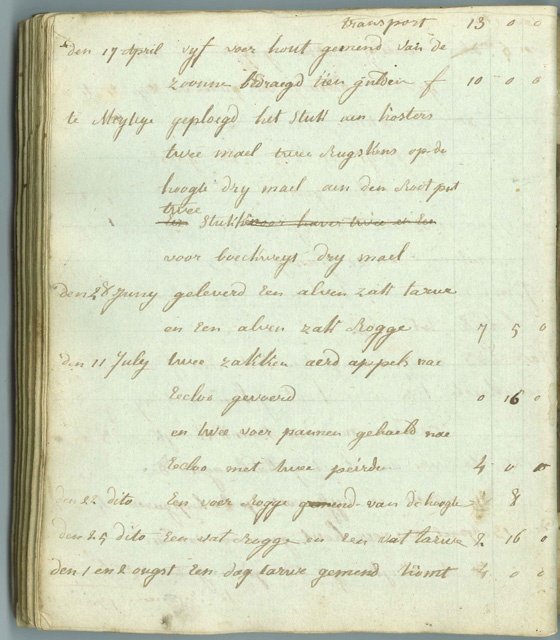 transport 13 0 0
den 17 April vyf voer hout gemend van de
zoonne bedraegd tien gulden f 10 0 0
te Meyleye geploegd het Stuk aen kosters
twee mael twee Rugskens op de
hoogte dry mael aen den Root put
twee
Een Stukken voor haver twee en Een
voor boeckweyt dry mael
den 28 Juny geleverd Een alven zak tarwe
en Een alven zak Rogge 7 5 0
den 11 July twee zakken aerd appels nae
Eecloo gevoerd 0 16 0
en twee voer pannen gehaeld nae
Eecloo met twee peirden 4 0 0
den 22 dito Een voer Rogge gemend van de hoogte 8
den 25 dito Een vat Rogge en Een vat tarwe 2 16 0
den 1 en 2 ougst Een dag tarwe gemend komt 4 0 0